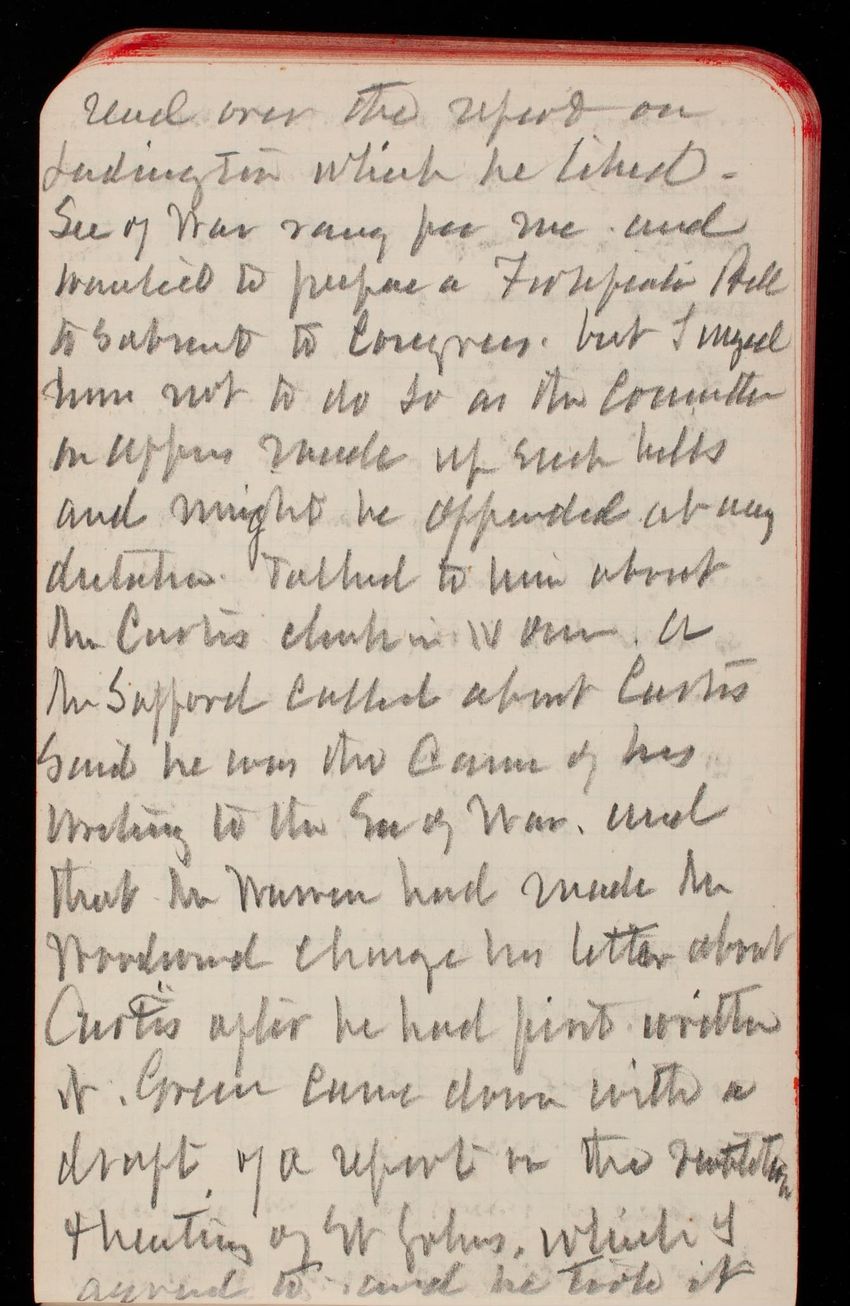 read over the report on
Ludington which he liked -
Sec of War rang for me and
wanted to prepare a Fortificatin Bill
to Submit to Congress. but I urged
him not to do so as the Committee
on Apprns made up such bills
and might be offended at any
dictation. Talked to him about
the Curtis clerk in
Mr Safford called about Curtis
Said he was the Cause of his
Writing to the Sec of War. and
that Mr Warren had made Mr
Woodward change his letter about
Curtis after he had first written
it. Green came down with a
draft of a report on the ventilation
& heating of St Johns, which I
agreed to and he took it